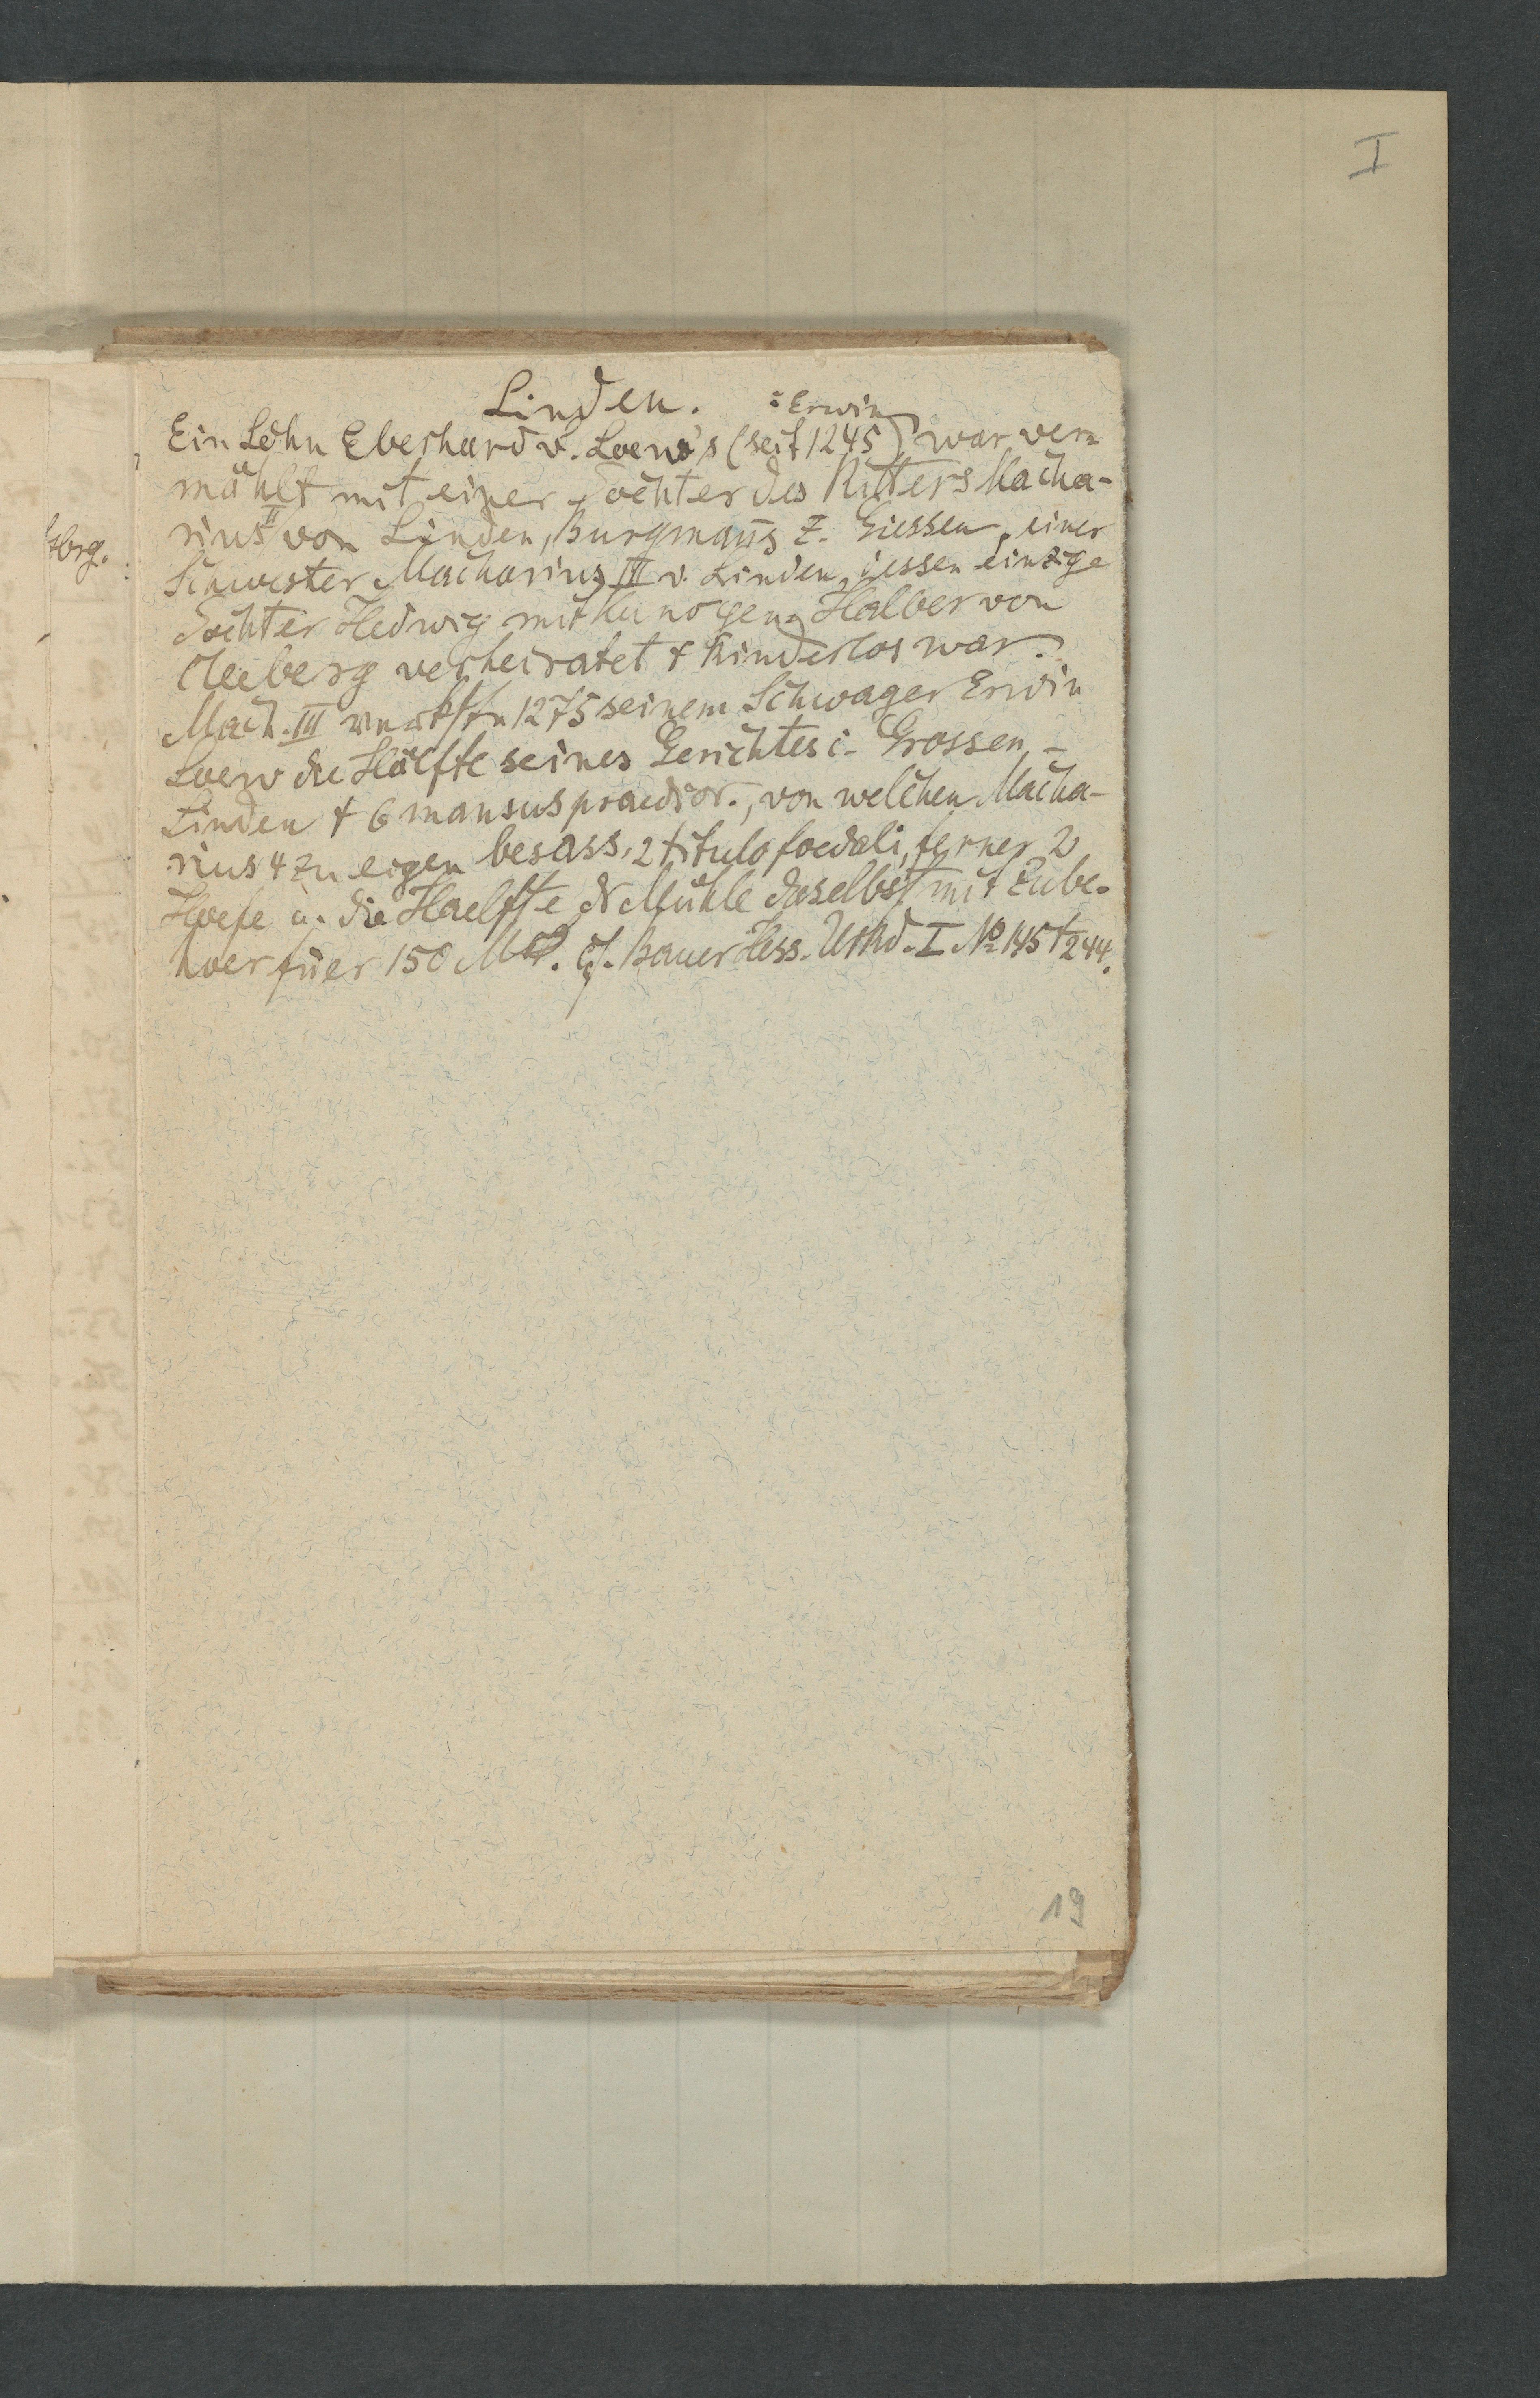 I
Linden.
: Erwin
Ein Sohn Eberhard v. Loew's (seit 1245) war ver=
mählt mit einer Tochter des Ritters Macha-
rius II von Linden, Burgmanns z. Giessen, einer
Schwester Macharius III v. Linden, dessen einzige
Tochter Hedwig mit Kuno gen. Halber von
Cleeberg verheiratet + kinderlos war.
Mach. III 1275 seinem Schwager Erwin
Loew die Hälfte seines Gerichtes i. Grossen-
Linden + 6 mansus praedior., von welchen Macha-
rius 4 zu eigen besass, 2 titulo foedali, ferner 2
Hoefe u. die Haelfte d Mühle daselbst mit Zube-
hoer fuer 150 Mk. Cf. Bauer Hess. Urkd. I No 145 + 244.
zbrg.
19